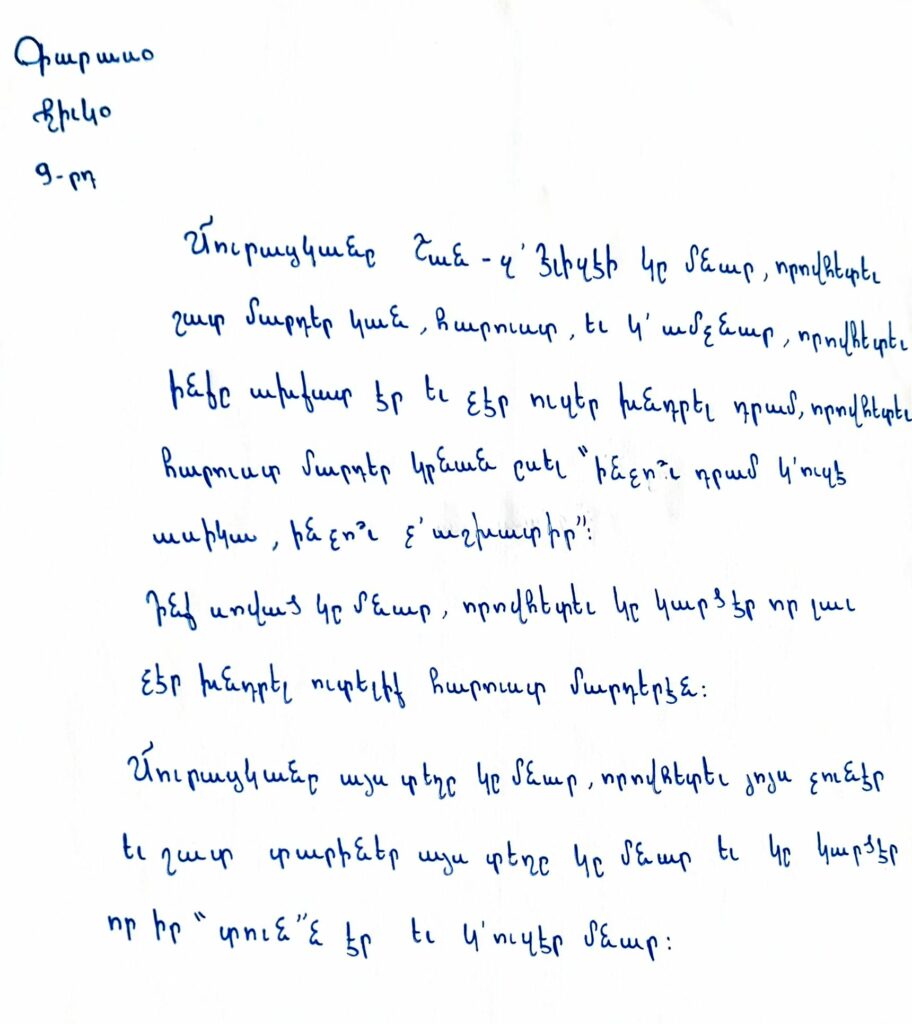 Փարասօ
Քիւկօ
9-րդ
Մուրացկանը Շան-զ՛Էլիզէի կը մնար, որովհետեւ
շատ մարդեր կան, հարուստ, եւ կ՛ամչնար, որովհետեւ
ինքը աղքատ էր եւ չէր ուզեր խնդրել դրամ, որովհետեւ
հարուստ մարդեր կրնան ըսել "ինչո՞ւ դրամ կ՛ուզէ
ասիկա, ինչո՞ւ չ՛աշխատիր"։
Ինք սոված կը մնար, որովհետեւ կը կարծէր որ լաւ
չէր խնդրել ուտելիք հարուստ մարդերէն։
Մուրացկանը այս տեղը կը մնար, որովհետեւ յոյս չունէր
եւ շատ տարիներ այս տեղը կը մնար եւ կը կարծէր
որ իր "տուն"ն էր եւ կ՛ուզէր մնար։